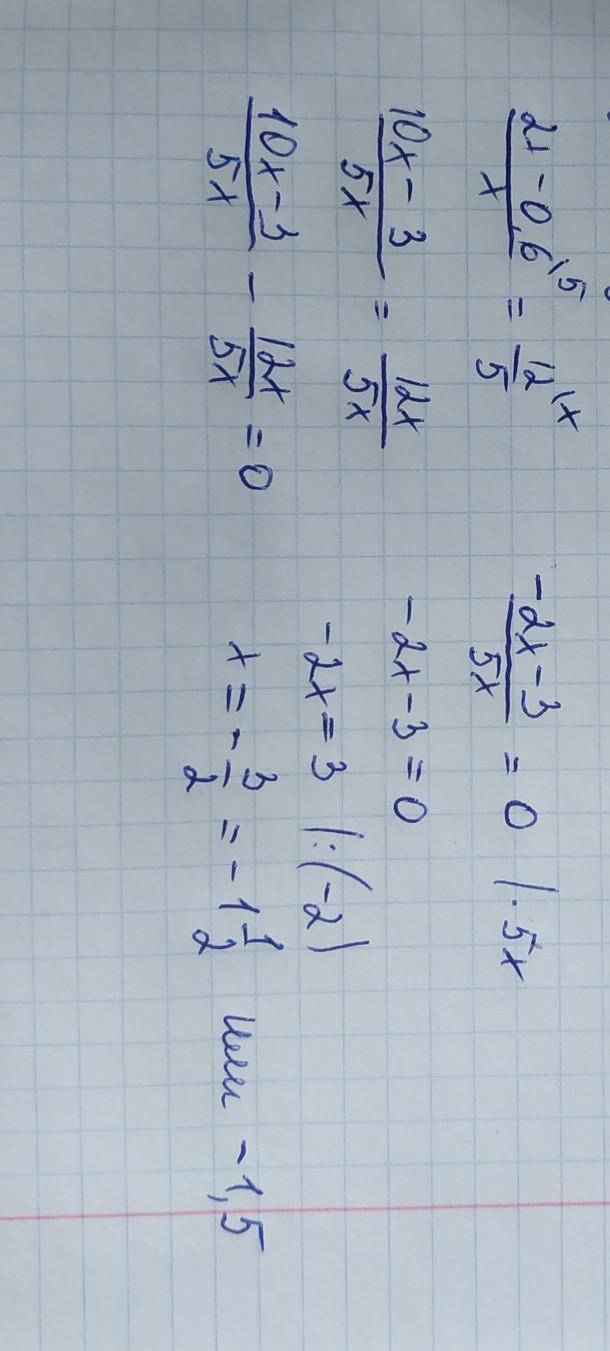 (2x - 0,6)/x \5 = 12/5 \x
(10x - 3)/5x = 12x/5x
(10x - 3)/5x - 12x/5x = 0
(-2x - 3)/5x = 0 | · 5x
-2x - 3 = 0
-2x = 3 |:(-2)
x = -3/2 = -1 1/2 или -1,5